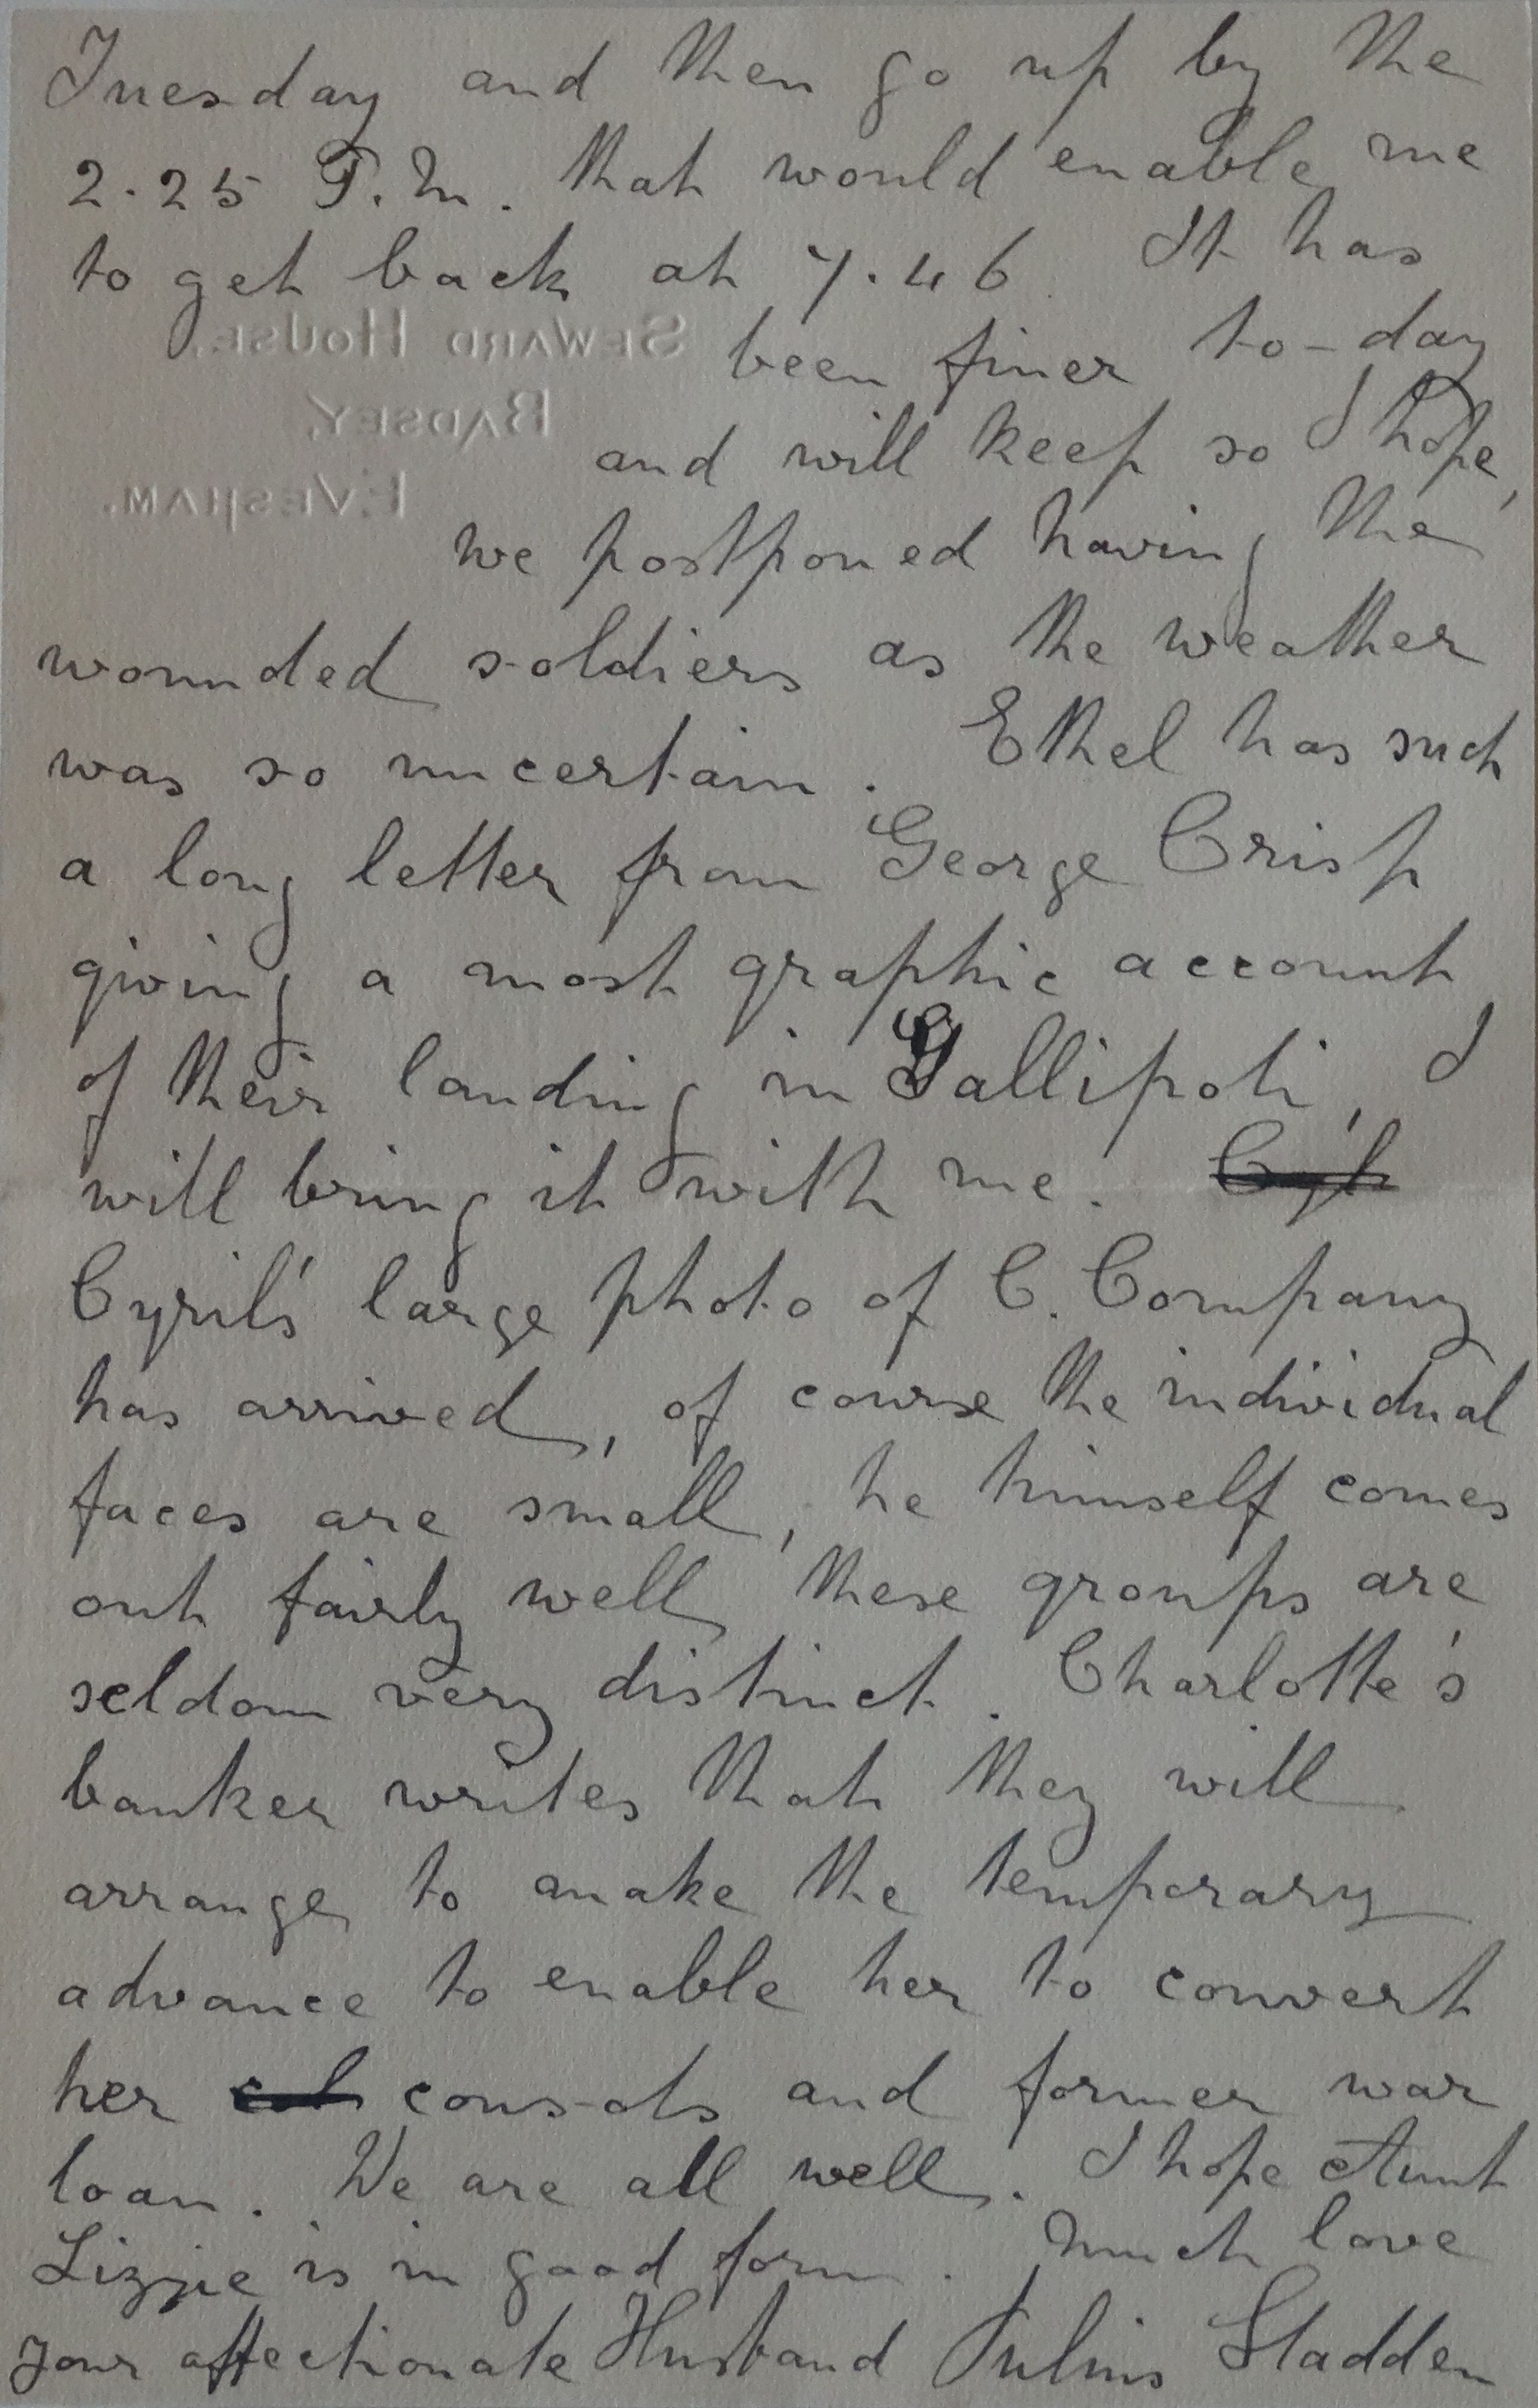 Tuesday and then go up by the
2.25 P.M. that would enable me
to get back at 7.46 It has
SEWARD HOUSE,
been finer to-day
BADSEY,
and will keep so I hope,
EVESHAM.
we postponed having the
wounded soldiers as the weather
was so uncertain. Ethel has such
a long letter from George Crisp
giving a most graphic account
of their landing in Gallipoli, I
will bring it with me.
Cyril's large photo of C. Company
has arrived, of course the individual
faces are small, he himself comes
out fairly well these groups are
seldom very distinct. Charlotte's
banker writes that they will
arrange to make the temporary
advance to enable her to convert
her consols and former war
loan. We are all well. I hope Aunt
Lizzie is in good form. Much love
your affectionate Husband Julius Sladden